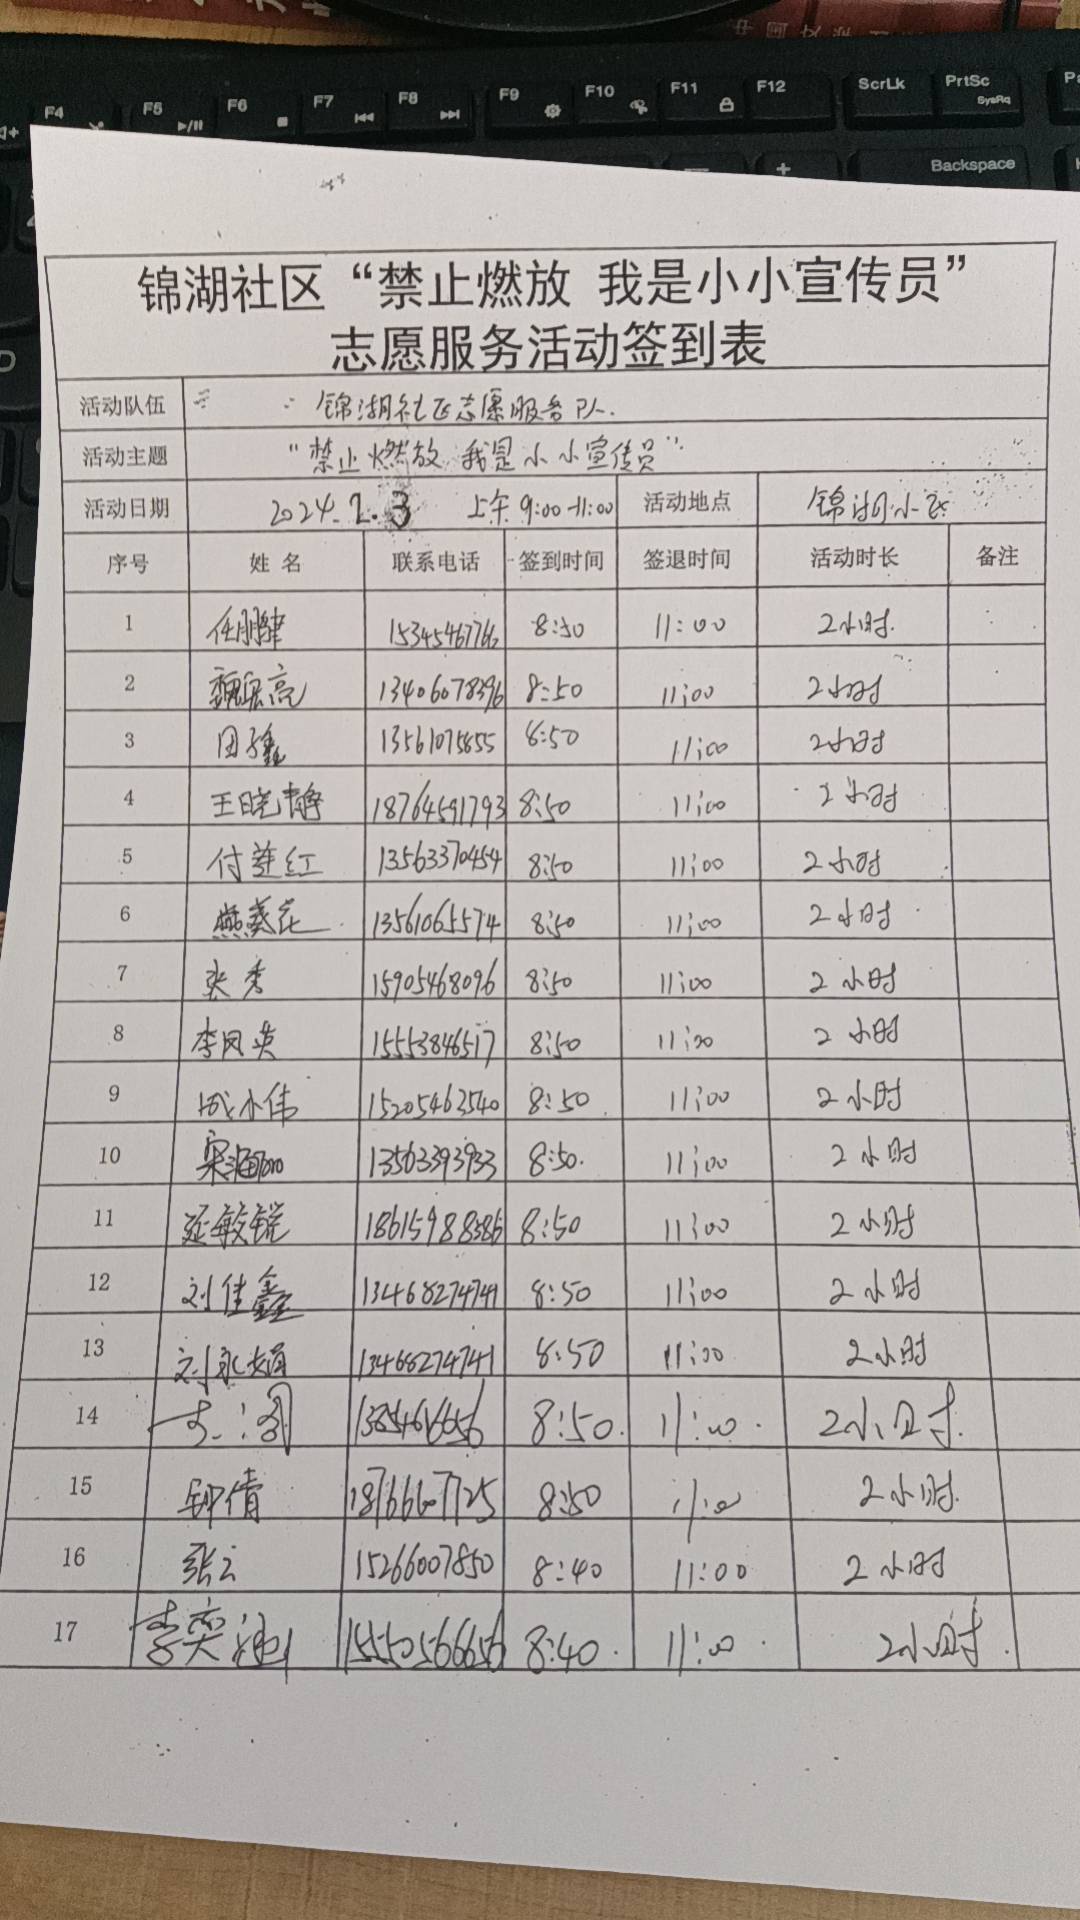 中国文学
F4 F5 F6 F7 F8 F9 F10 F11 F12 ScrLk PrtSc
SysRq
Backspace
锦湖社区“禁止燃放 我是小小宣传员”
志愿服务活动签到表
活动队伍 锦湖社区志愿服务队.
活动主题 “禁止燃放 我是小小宣传员”
活动日期 2024.2.3 上午9:00-11:00 活动地点 锦湖小区
序号 姓名 联系电话 签到时间 签退时间 活动时长 备注
1 15345467766 8:50 11:00 2小时.
2 13406078396 8:50 11:00 2小时
3 13561075855 8:50 11:00 2小时
4 王晓静 18764591793 8:50 11:00 2小时
5 付莲红 13563370454 8:50 11:00 2小时
6 燕葵花 13561065574 8:50 11:00 2小时
7 张秀 15905468096 8:50 11:00 2小时
8 李凤英 15553846517 8:50 11:00 2小时
9 成小伟 15205463540 8:50 11:00 2小时
10 13563393933 8:50. 11:00 2小时
11 延敏锐 18615988386 8:50 11:00 2小时
12 刘佳鑫 13468274741 8:50 11:00 2小时
13 13468274741 8:50 11:00 2小时
14 8:50. 11:00. 2小时.
15 钟倩 18766607725 8:50 11:00 2小时.
16 张云 15266007850 8:40 11:00 2小时
17 15550566656 8:40. 11:00. 2小时.